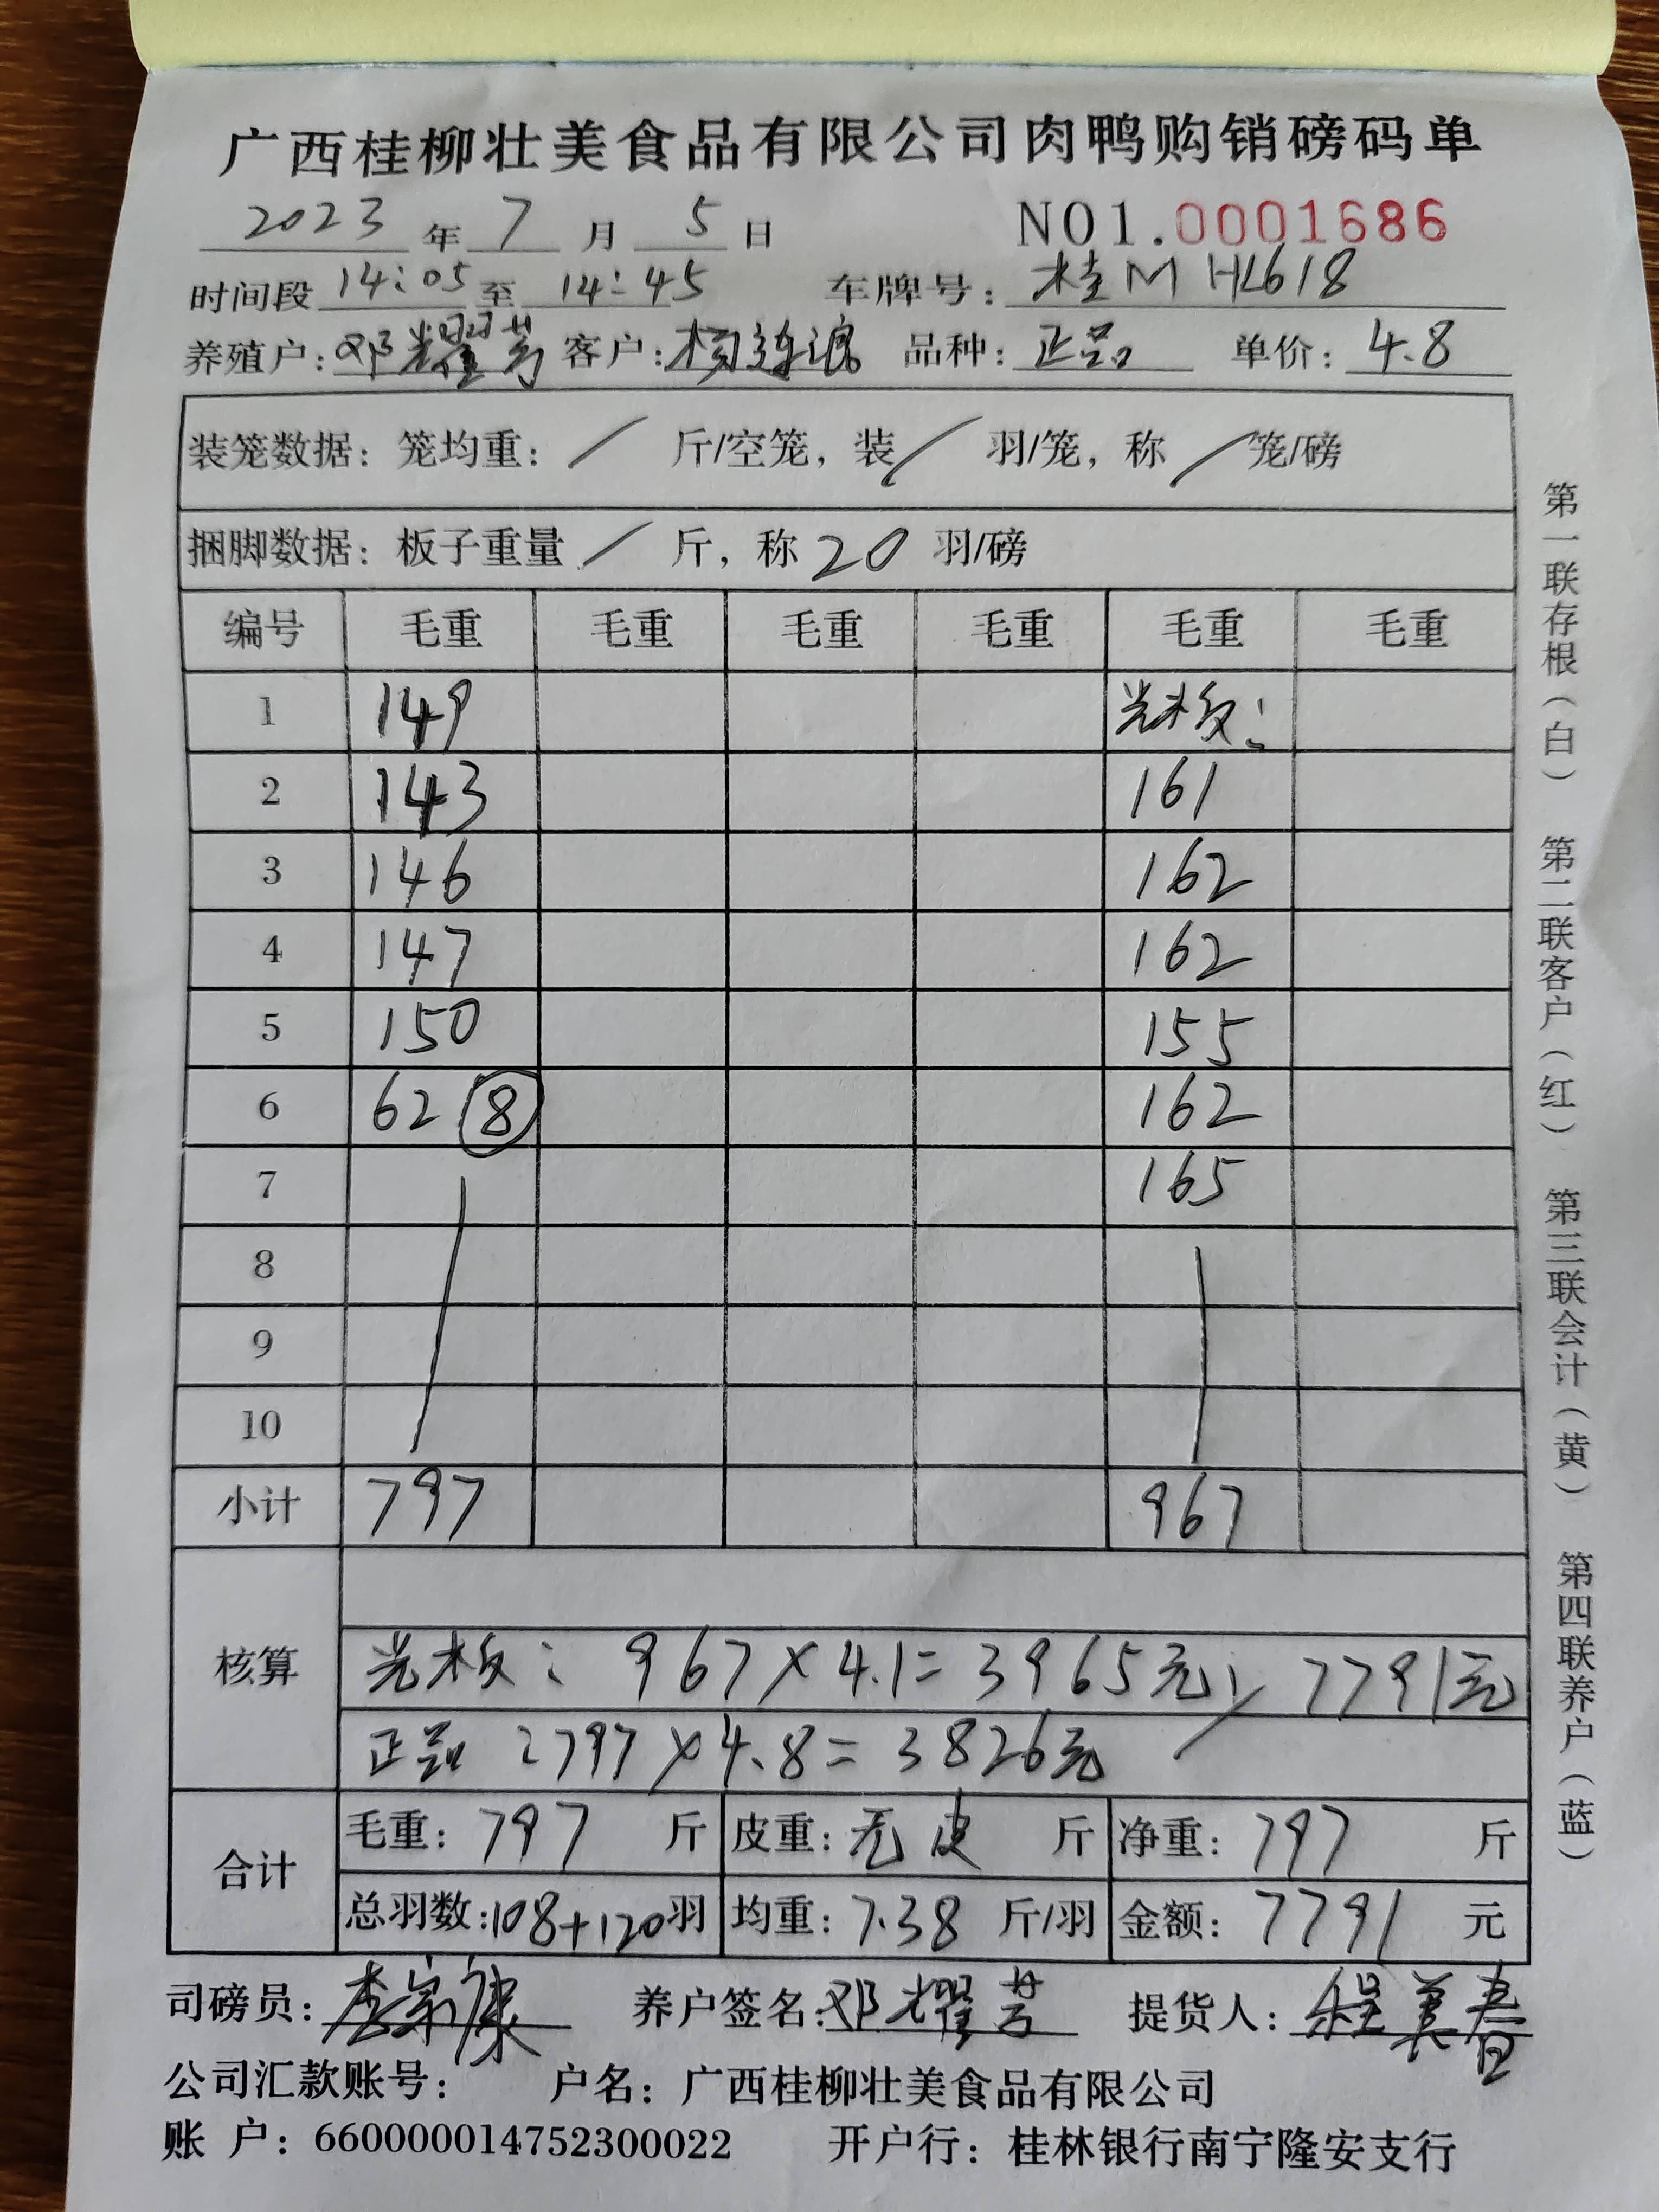 广西桂柳壮美食品有限公司肉鸭购销磅码单
2023 年 7 月 5 日 NO1.0001686
时间段 14:05 至 14:45 车牌号: 桂M HL618
养殖户: 邓耀芳 客户: 杨连浪 品种: 正品 单价: 4.8
装笼数据: 笼均重: / 斤/空笼, 装 / 羽/笼, 称 / 笼/磅
捆脚数据: 板子重量 / 斤, 称 20 羽/磅
编号 毛重 毛重 毛重 毛重 毛重 毛重
1 149 光板:
2 143 161
3 146 162
4 147 162
5 150 155
6 62 ⑧ 162
7 165
8
9
10
小计 797 967
核算
光板: 967×4.1=3965元 7791元
正品:797×4.8=3826元
合计
毛重: 797 斤 皮重: 无皮 斤 净重: 797 斤
总羽数:108+120羽 均重: 7.38 斤/羽 金额: 7791 元
司磅员: 李宗康 养户签名:邓耀芳 提货人: 程美春
公司汇款账号: 户名: 广西桂柳壮美食品有限公司
账 户: 660000014752300022 开户行: 桂林银行南宁隆安支行
第一联存根(白) 第二联客户(红) 第三联会计(黄) 第四联养户(蓝)